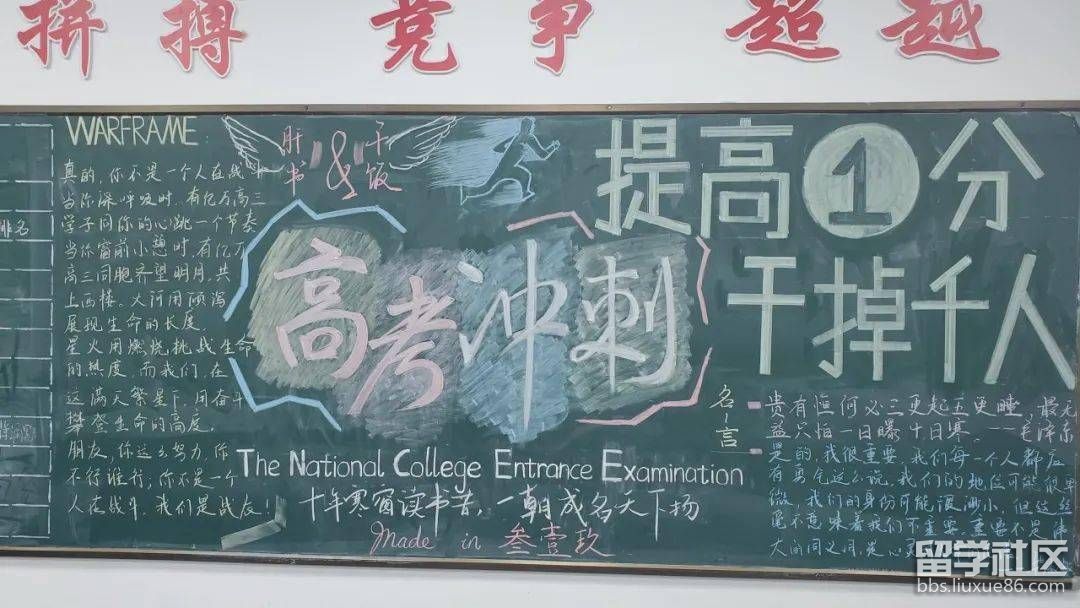 拼搏 竞争 超越
排名
WARFRAME
真的,你不是一个人在战斗
当你深呼吸时,有亿万高三
学子同你的心跳一个节奏
当你窗前小憩时,有亿万
高三同胞齐望明月,共
上西楼。火河用倾泻
展现生命的长度,
星火用燃烧挑战生命
的热度,而我们,在
这满天繁星下,用奋斗
攀登生命的高度。
朋友,你这么努力,你
不行谁行;你不是一个
人在战斗,我们是战友!
肝书
&
干饭
高考冲刺
The National College Entrance Examination
十年寒窗读书苦,一朝成名天下扬
Made in 叁壹玖
提高1分
干掉千人
名言
贵有恒何必三更起五更睡,最无
益只怕一日曝十日寒。——毛泽东
是的,我很重要。我们每一个人都应
有勇气这么说。我们的地位可能很卑
微,我们的身份可能很渺小,但这丝
毫不意味着我们不重要。重要不是伟
大的同义词,是心灵
留学社区
bbs.liuxue86.com